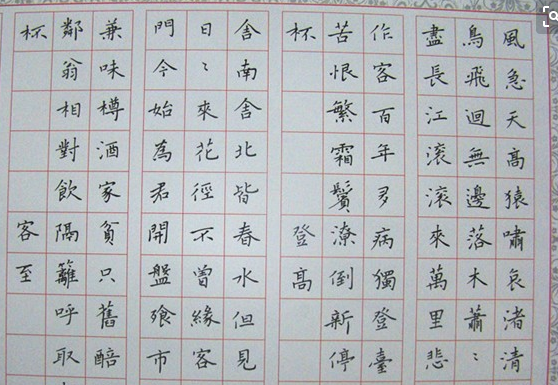 風急天高猿嘯哀渚清
鳥飛迴無邊落木蕭〻
盡長江滾滾來萬里悲
作客百年多病獨登臺
苦恨繁霜鬢潦倒新停
杯
登高
舍南舍北皆春水但見
日〻來花徑不曾緣客
門今始為君開盤飧市
兼味樽酒家貧只舊醅
鄰翁相對飲隔籬呼取
杯
客至